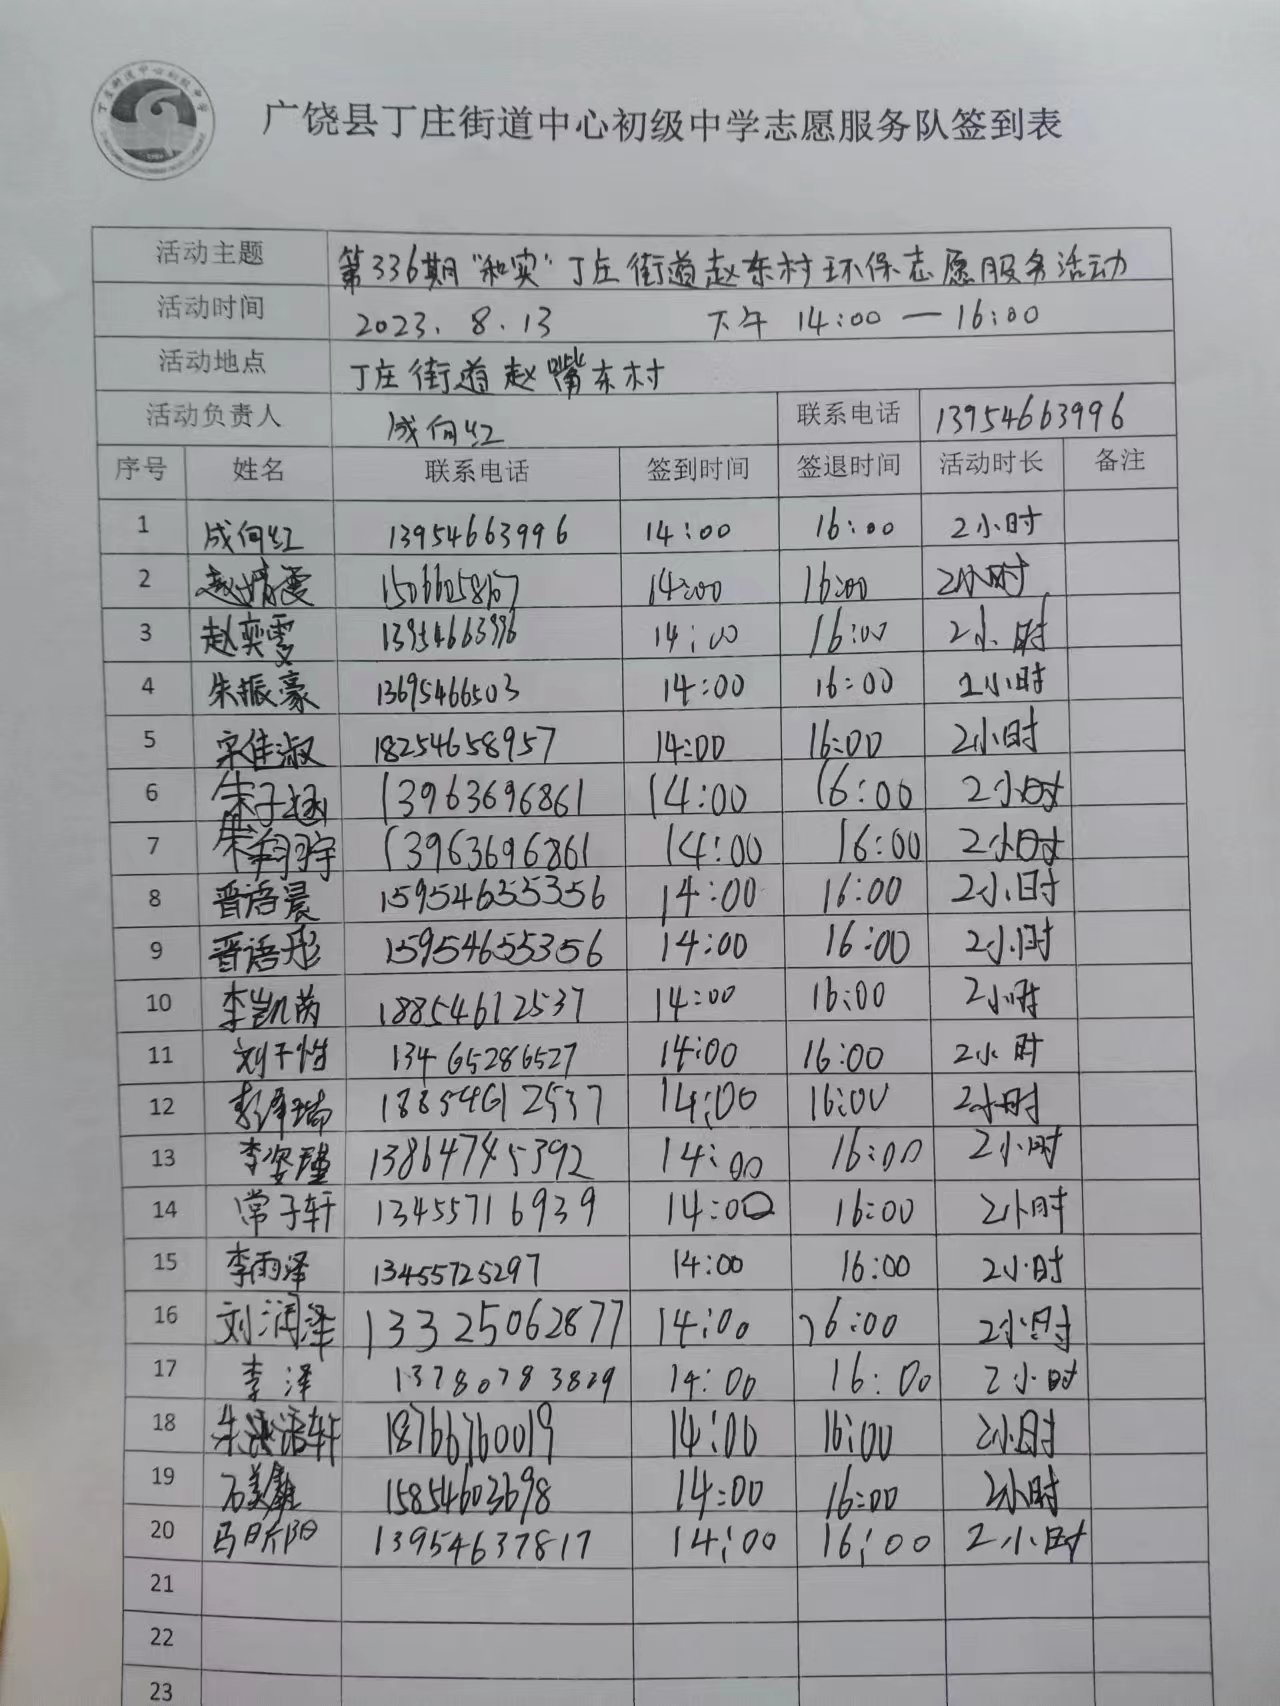 广饶县丁庄街道中心初级中学志愿服务队签到表
活动主题 第336期“和实”丁庄街道赵东村环保志愿服务活动
活动时间 2023.8.13 下午 14:00—16:00
活动地点 丁庄街道赵嘴东村
活动负责人 成向红 联系电话 13954663996
序号 姓名 联系电话 签到时间 签退时间 活动时长 备注
1 成向红 13954663996 14:00 16:00 2小时
2 赵婧雯 14:00 16:00 2小时
3 赵奕雯 13954663996 14:00 16:00 2小时
4 朱振豪 13695466503 14:00 16:00 2小时
5 宋佳淑 18254658957 14:00 16:00 2小时
6 朱子涵 13963696861 14:00 16:00 2小时
7 朱翔宇 13963696861 14:00 16:00 2小时
8 晋语晨 15954655356 14:00 16:00 2小时
9 晋语彤 15954655356 14:00 16:00 2小时
10 李凯茵 18854612537 14:00 16:00 2小时
11 刘千怡 13465286527 14:00 16:00 2小时
12 18854612537 14:00 16:00 2小时
13 李姿瑾 13864745392 14:00 16:00 2小时
14 常子轩 13455716939 14:00 16:00 2小时
15 李雨泽 13455725297 14:00 16:00 2小时
16 刘润泽 13325062877 14:00 16:00 2小时
17 李泽 13780783829 14:00 16:00 2小时
18 朱语轩 18766760019 14:00 16:00 2小时
19 15854603698 14:00 16:00 2小时
20 马昕阳 13954637817 14:00 16:00 2小时
21
22
23